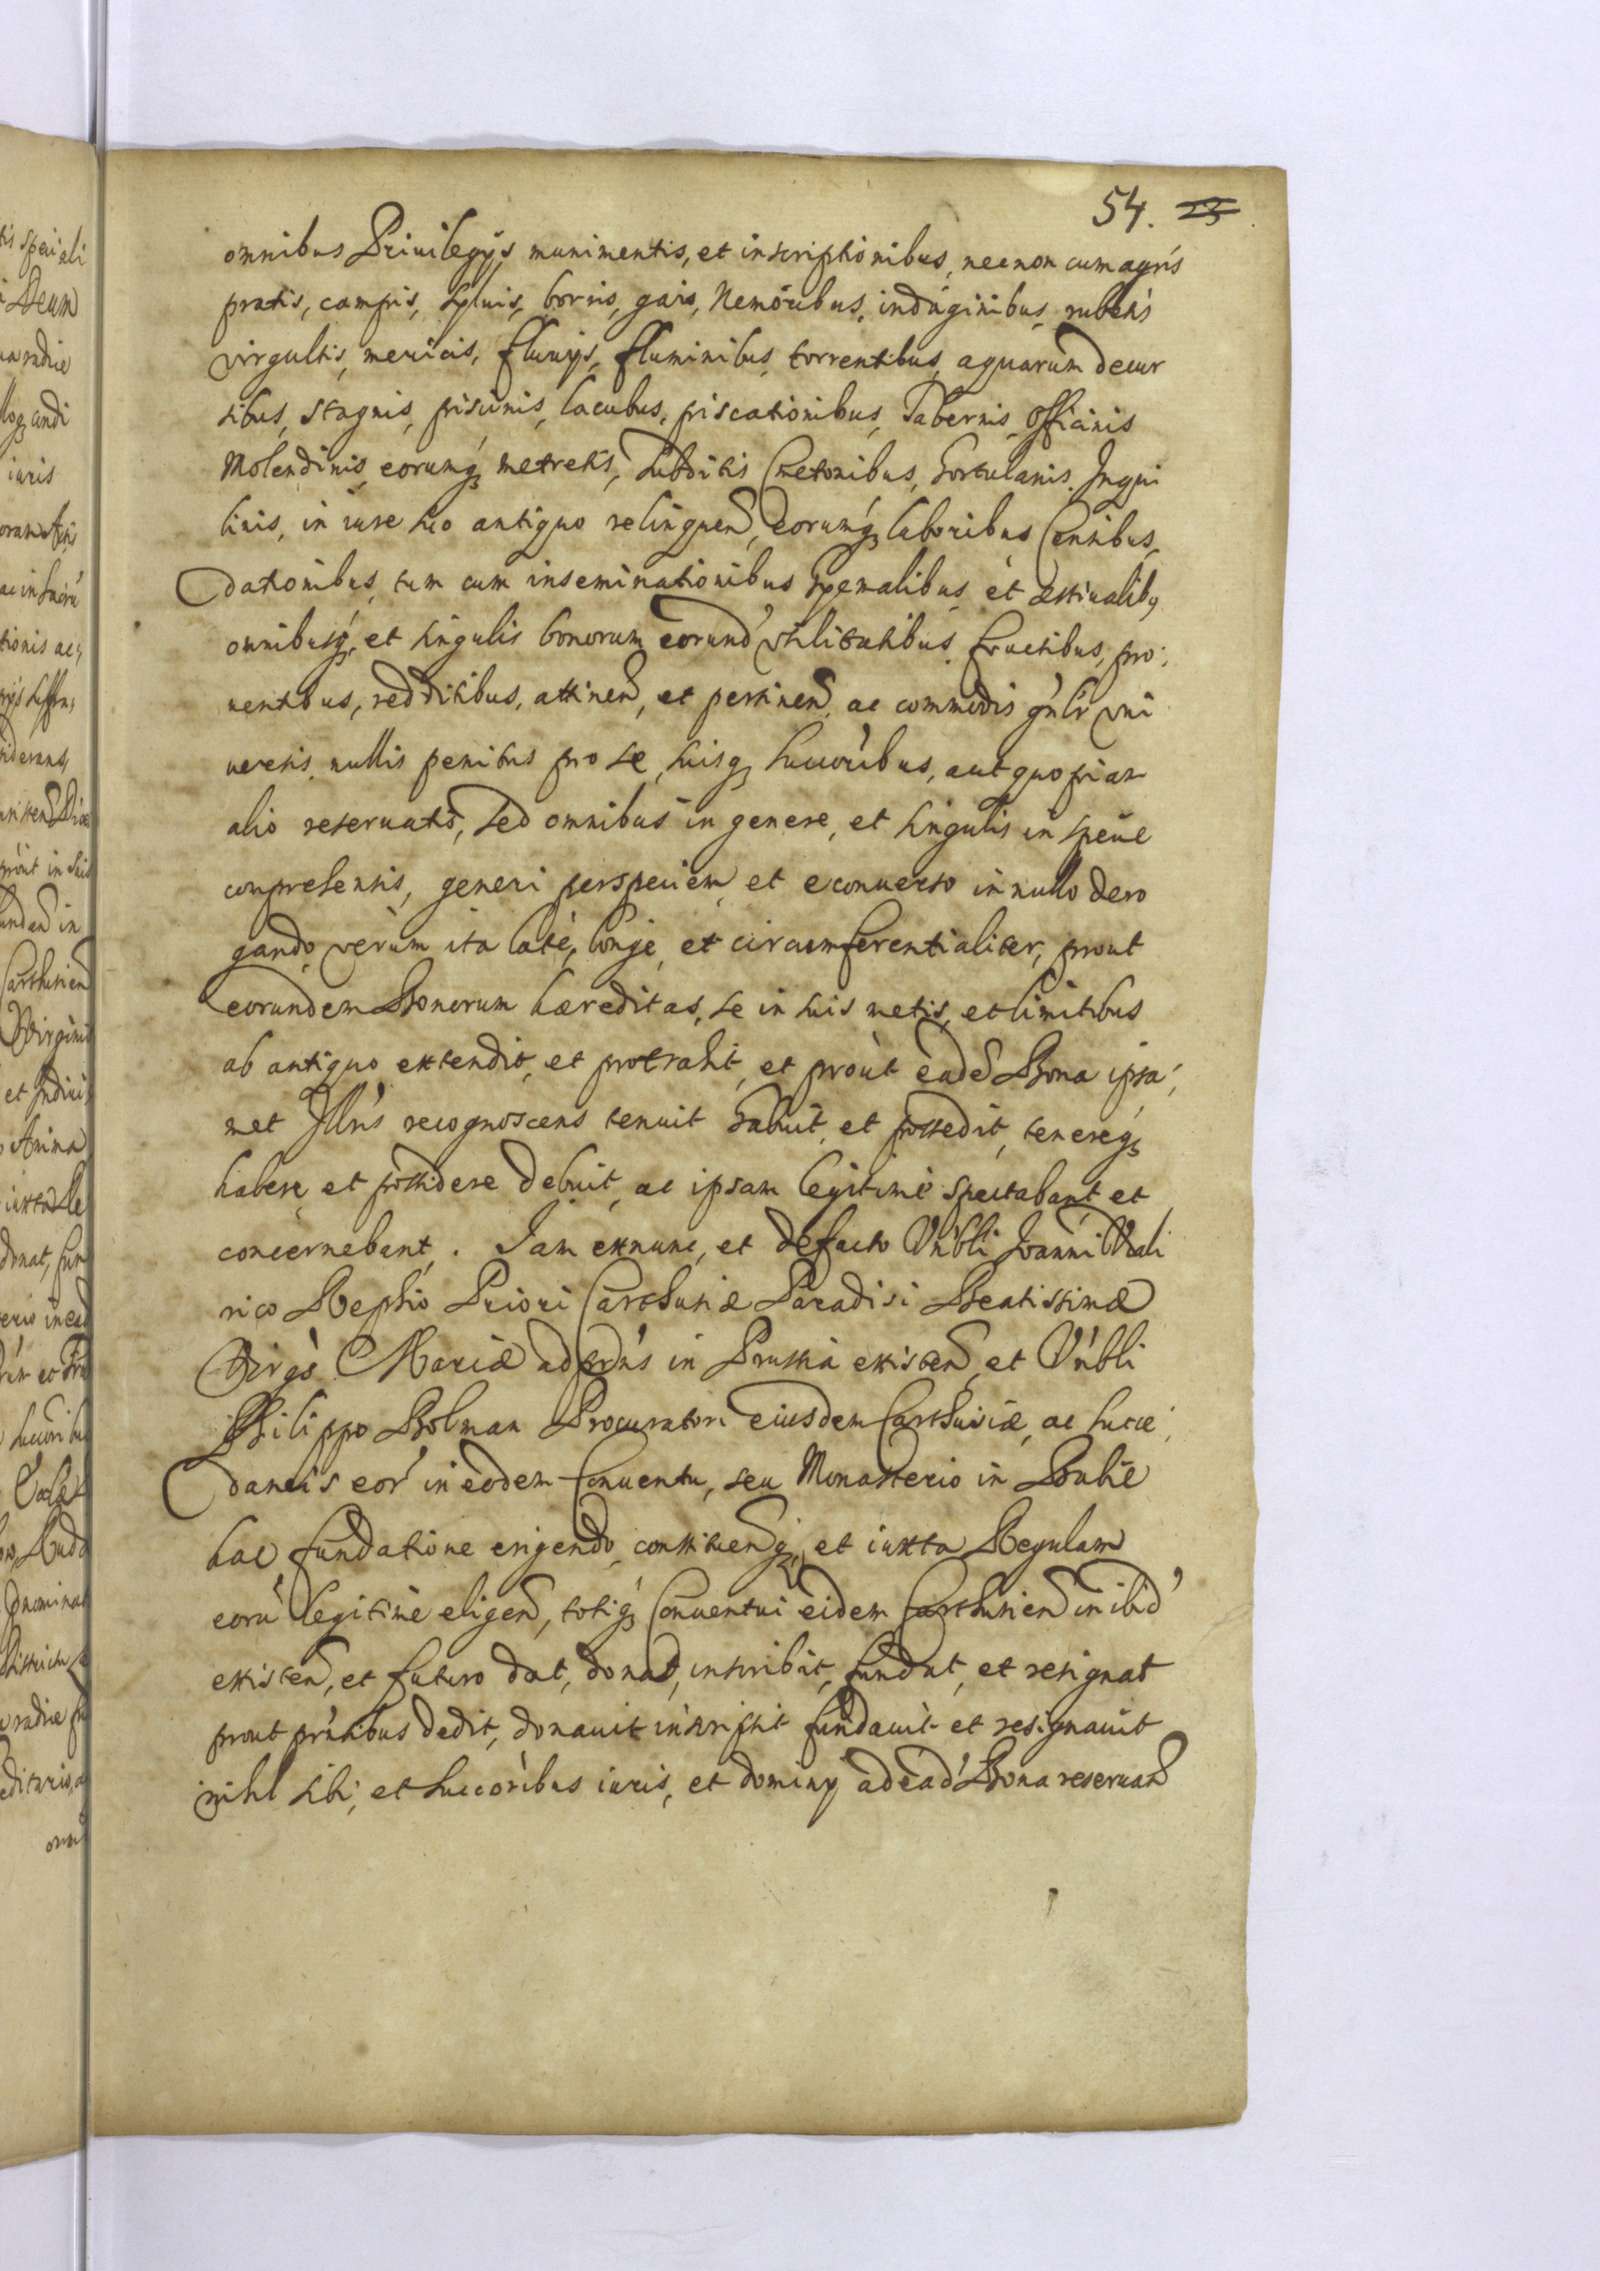 54. 23
omnibus Priuilegijs munimentis, et inscriptionibus, necnon cum agris
pratis, campis, syluis, borris, gais, Nemoribus, indaginibus, rubetis
virgultis, mericis, fluuijs, fluminibus, torrentibus, aquarum decur
sibus, stagnis, piscinis, lacubus, piscationibus, Tabernis, Officinis
Molendinis, eorumq; metretis, subditis Cmetonibus, Hortulanis, Inqui
linis, in iure suo antiquo relinquen, eorumq; laboribus Censibus,
dationibus, tum cum inseminationibus hyemalibus, et æstiualib9
omnibusq; et singulis bonorum eorund' vtilitatibus, fructibus, pro:
uentibus, redditibus, attinen, et pertinen, ac commodis gnlr vni
uersis, nullis penitus pro se, suisq; succoribus, aut quopiam
alio reseruatis, sed omnibus in genere, et singulis in specie
compresensis, generi per speciem, et econuerso in nullo dero
gando, verum ita late, longe, et circumferentialiter, prout
eorundem Bonorum hæreditas, se in suis metis, et limitibus
ab antiquo extendit, et protrahit, et prout eade Bona ipsa;
met Illris recognoscens tenuit habuit, et possedit, tenereq;
habere, et possidere debuit, ac ipsam legitime spectabant, et
concernebant. Iam exnunc, et defacto Vnbli Joanni Wali
rico Rephio Priori Carthusiæ Paradisi Beatissimæ
Virgs Mariæ ad in Prussia existen, et Vnbli
Philippo Bolman Procuratori eiusdem Carthusiæ, ac succe;
daneis eor' in eodem Conuentu, seu Monasterio in
hac fundatione erigendo, constituenq; et iuxta Regulam
eoru legitime eligen, totiq; Conuentui eidem Carthusien inibid'
existen, et futuro dat, donat, inscribit, fundat, et resignat
prout prntibus dedit, donauit inscripsit fundauit et resignauit
nihl sibi, et succoribus iuris, et dominij ad ead' Bona reseruan